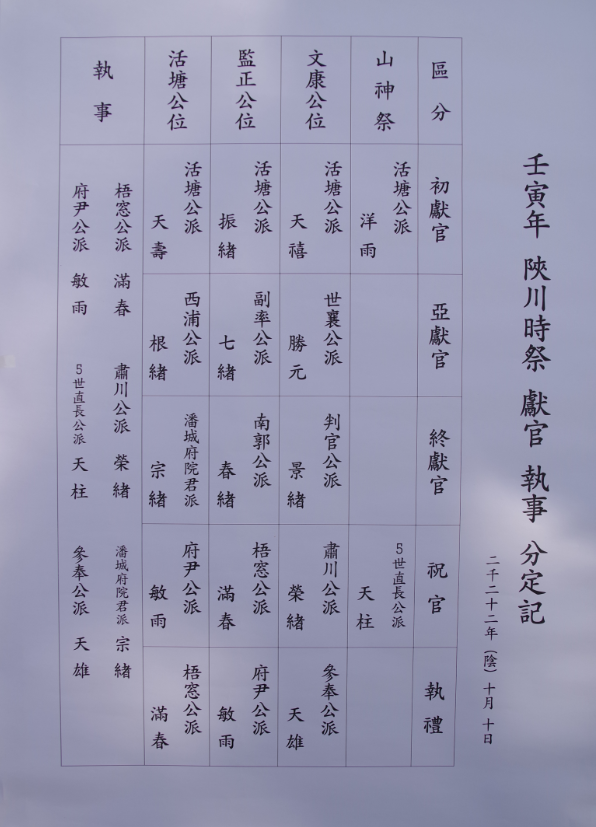 壬寅年 陜川時祭 獻官 執事 分定記
二千二十二年 (陰) 十月 十日
區分
初獻官
亞獻官
終獻官
祝官
執禮
山神祭
活塘公派
洋雨
5世直長公派
天柱
文康公位
活塘公派
天禧
世襄公派
勝元
判官公派
景緒
肅川公派
榮緒
參奉公派
天雄
監正公位
活塘公派
振緒
副率公派
七緒
南郭公派
春緒
梧窓公派
滿春
府尹公派
敏雨
活塘公位
活塘公派
天壽
西浦公派
根緒
潘城府院君派
宗緒
府尹公派
敏雨
梧窓公派
滿春
執事
梧窓公派 滿春 肅川公派 榮緒 潘城府院君派 宗緒
府尹公派 敏雨 5世直長公派 天柱 參奉公派 天雄